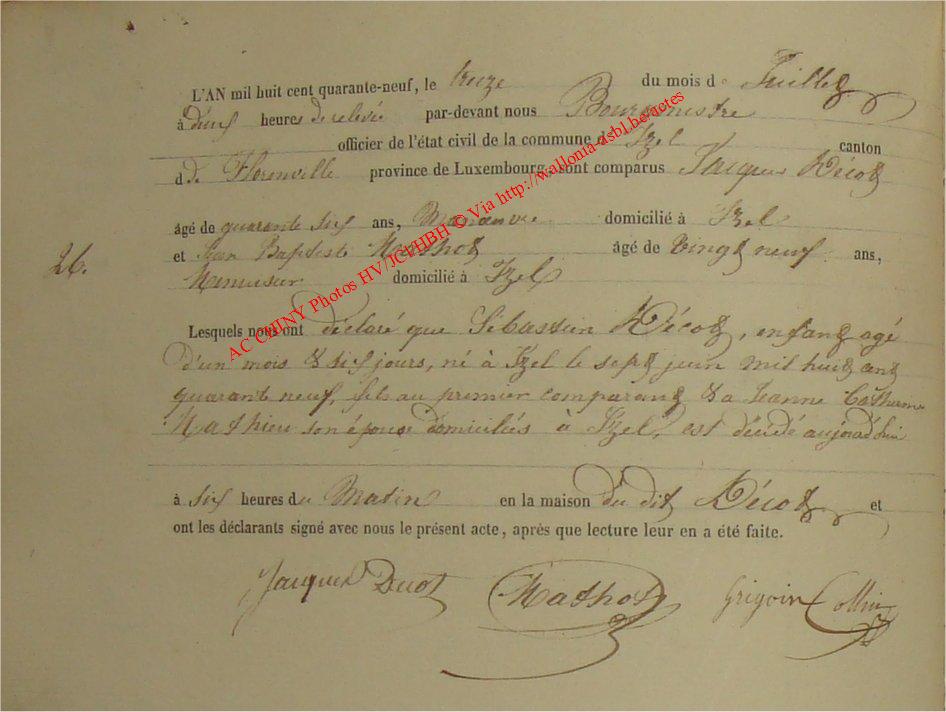 L'AN mil huit cent quarante-neuf, le treize du mois de Juillet
à deux heures de relevée par-devant nous Bourgmestre
officier de l'état civil de la commune d' Izel canton
d de Florenville province de Luxembourg, sont comparus Jacques Décot
âgé de quarante six ans, Manœuvre domicilié à Izel
et Jean Baptiste Mathot âgé de vingt neuf ans,
26.
Menuisier domicilié à Izel
Lesquels nous ont déclaré que Sébastien Décot, enfant agé
d'un mois & six jours, né à Izel le sept juin mil huit cent
quarante neuf, fils au premier comparant & a Jeanne Catherine
Mathieu son épouse domiciliés à Izel, est décédé aujourd'hui
à six heures du Matin en la maison du dit Décot et
ont les déclarants signé avec nous le présent acte, après que lecture leur en a été faite.
Jacques Ducot Mathot Grigoire Collin
AC CHINY Photos HV/JCVHBH © Via http://wallonia-asbl.be/actes